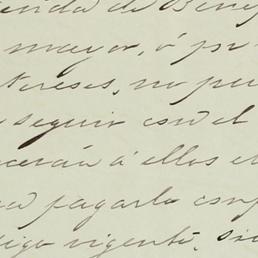 enda de Bien
mayor, ó por
tereses, no pu
seguir con el
cerán á ellos e
pagarlo conf
digo vigente, si